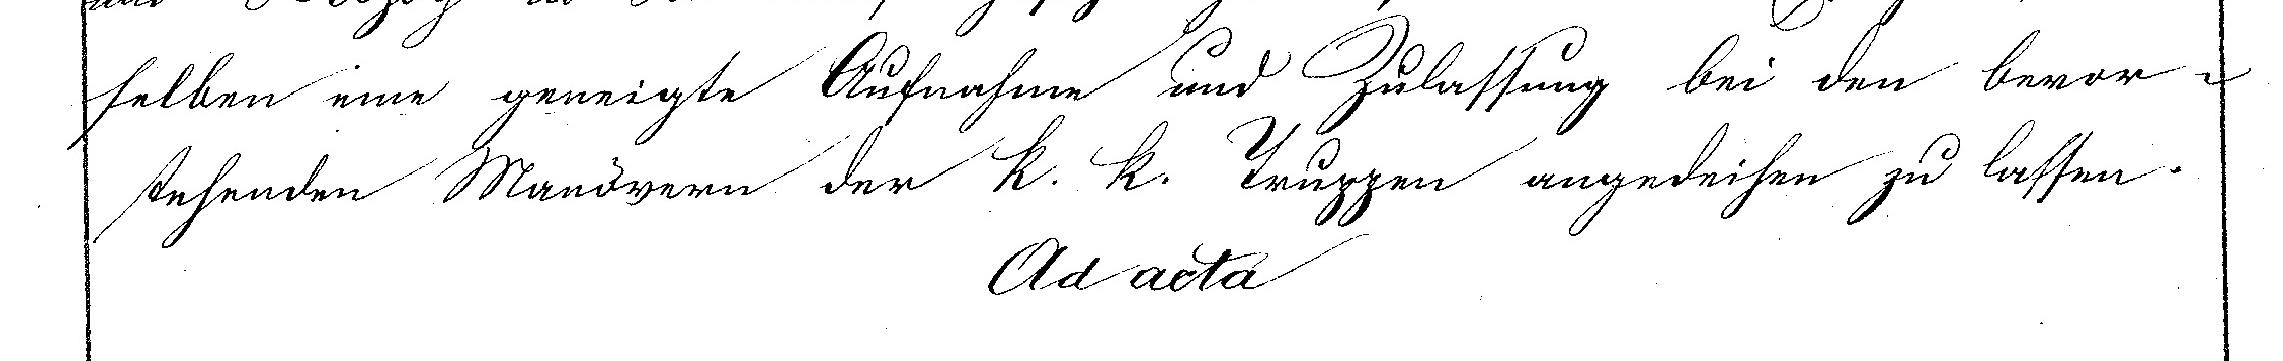 selben eine geneigte Aufnahme und Zulassung bei den bevor-
stehenden Manövern der k. k. Truppen angedeihen zu lassen.
Ad acta